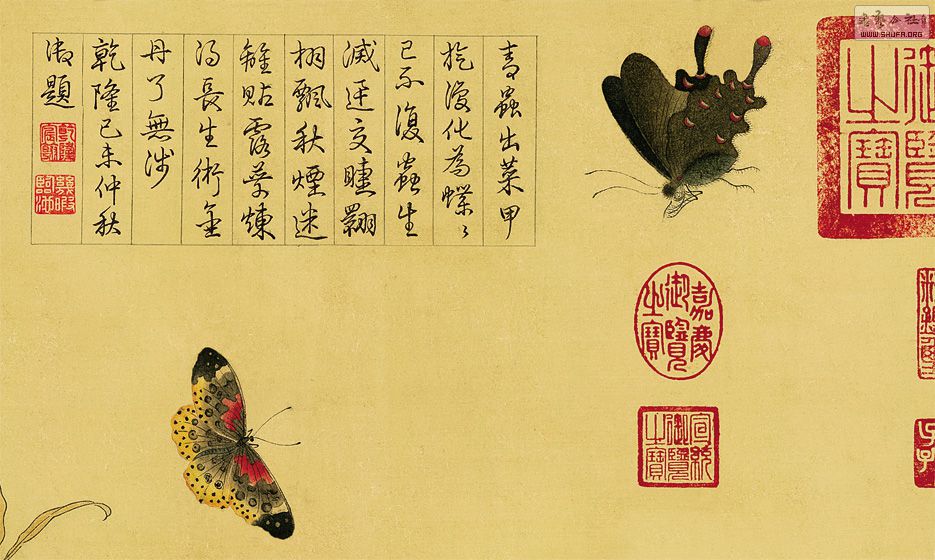 青蟲出菜甲
旋復化為蝶〻
已不復蟲生
滅交睫翾
栩飄秋煙迷
離貼露葉煉
得長生術金
丹了無涉
乾隆己未仲秋
御題
乾隆宸翰
幾暇臨池
御覽之寶
嘉慶御覽之寶
宣統御覽之寶
WWW.SHUFA.ORG